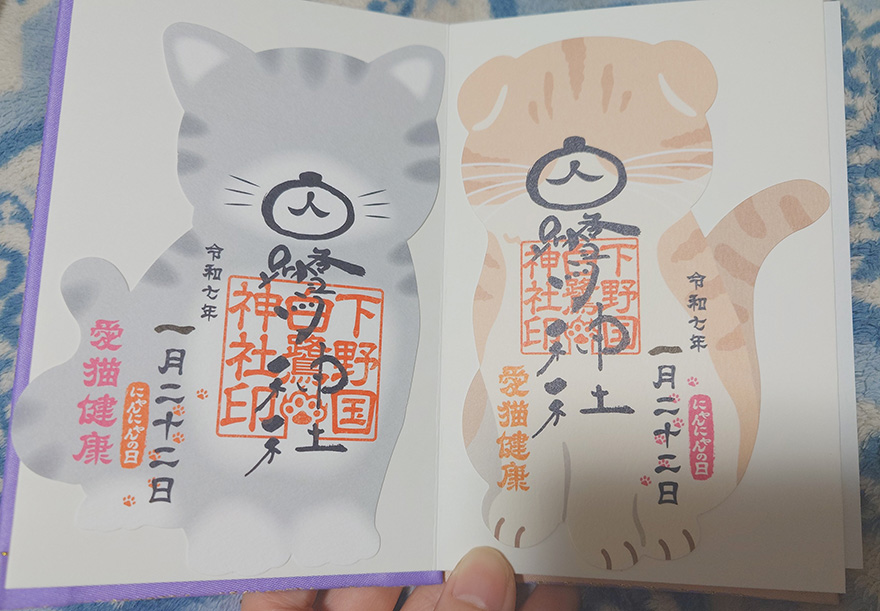 令和七年
一月二十二日
にゃんにゃんの日
白鷺神社
下野国
白鷺
神社印
愛猫健康
白鷺神社
下野国
白鷺
神社印
令和七年
一月二十二日
にゃんにゃんの日
愛猫健康